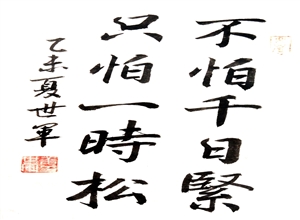 不怕千日緊
只怕一時松
乙未夏世軍